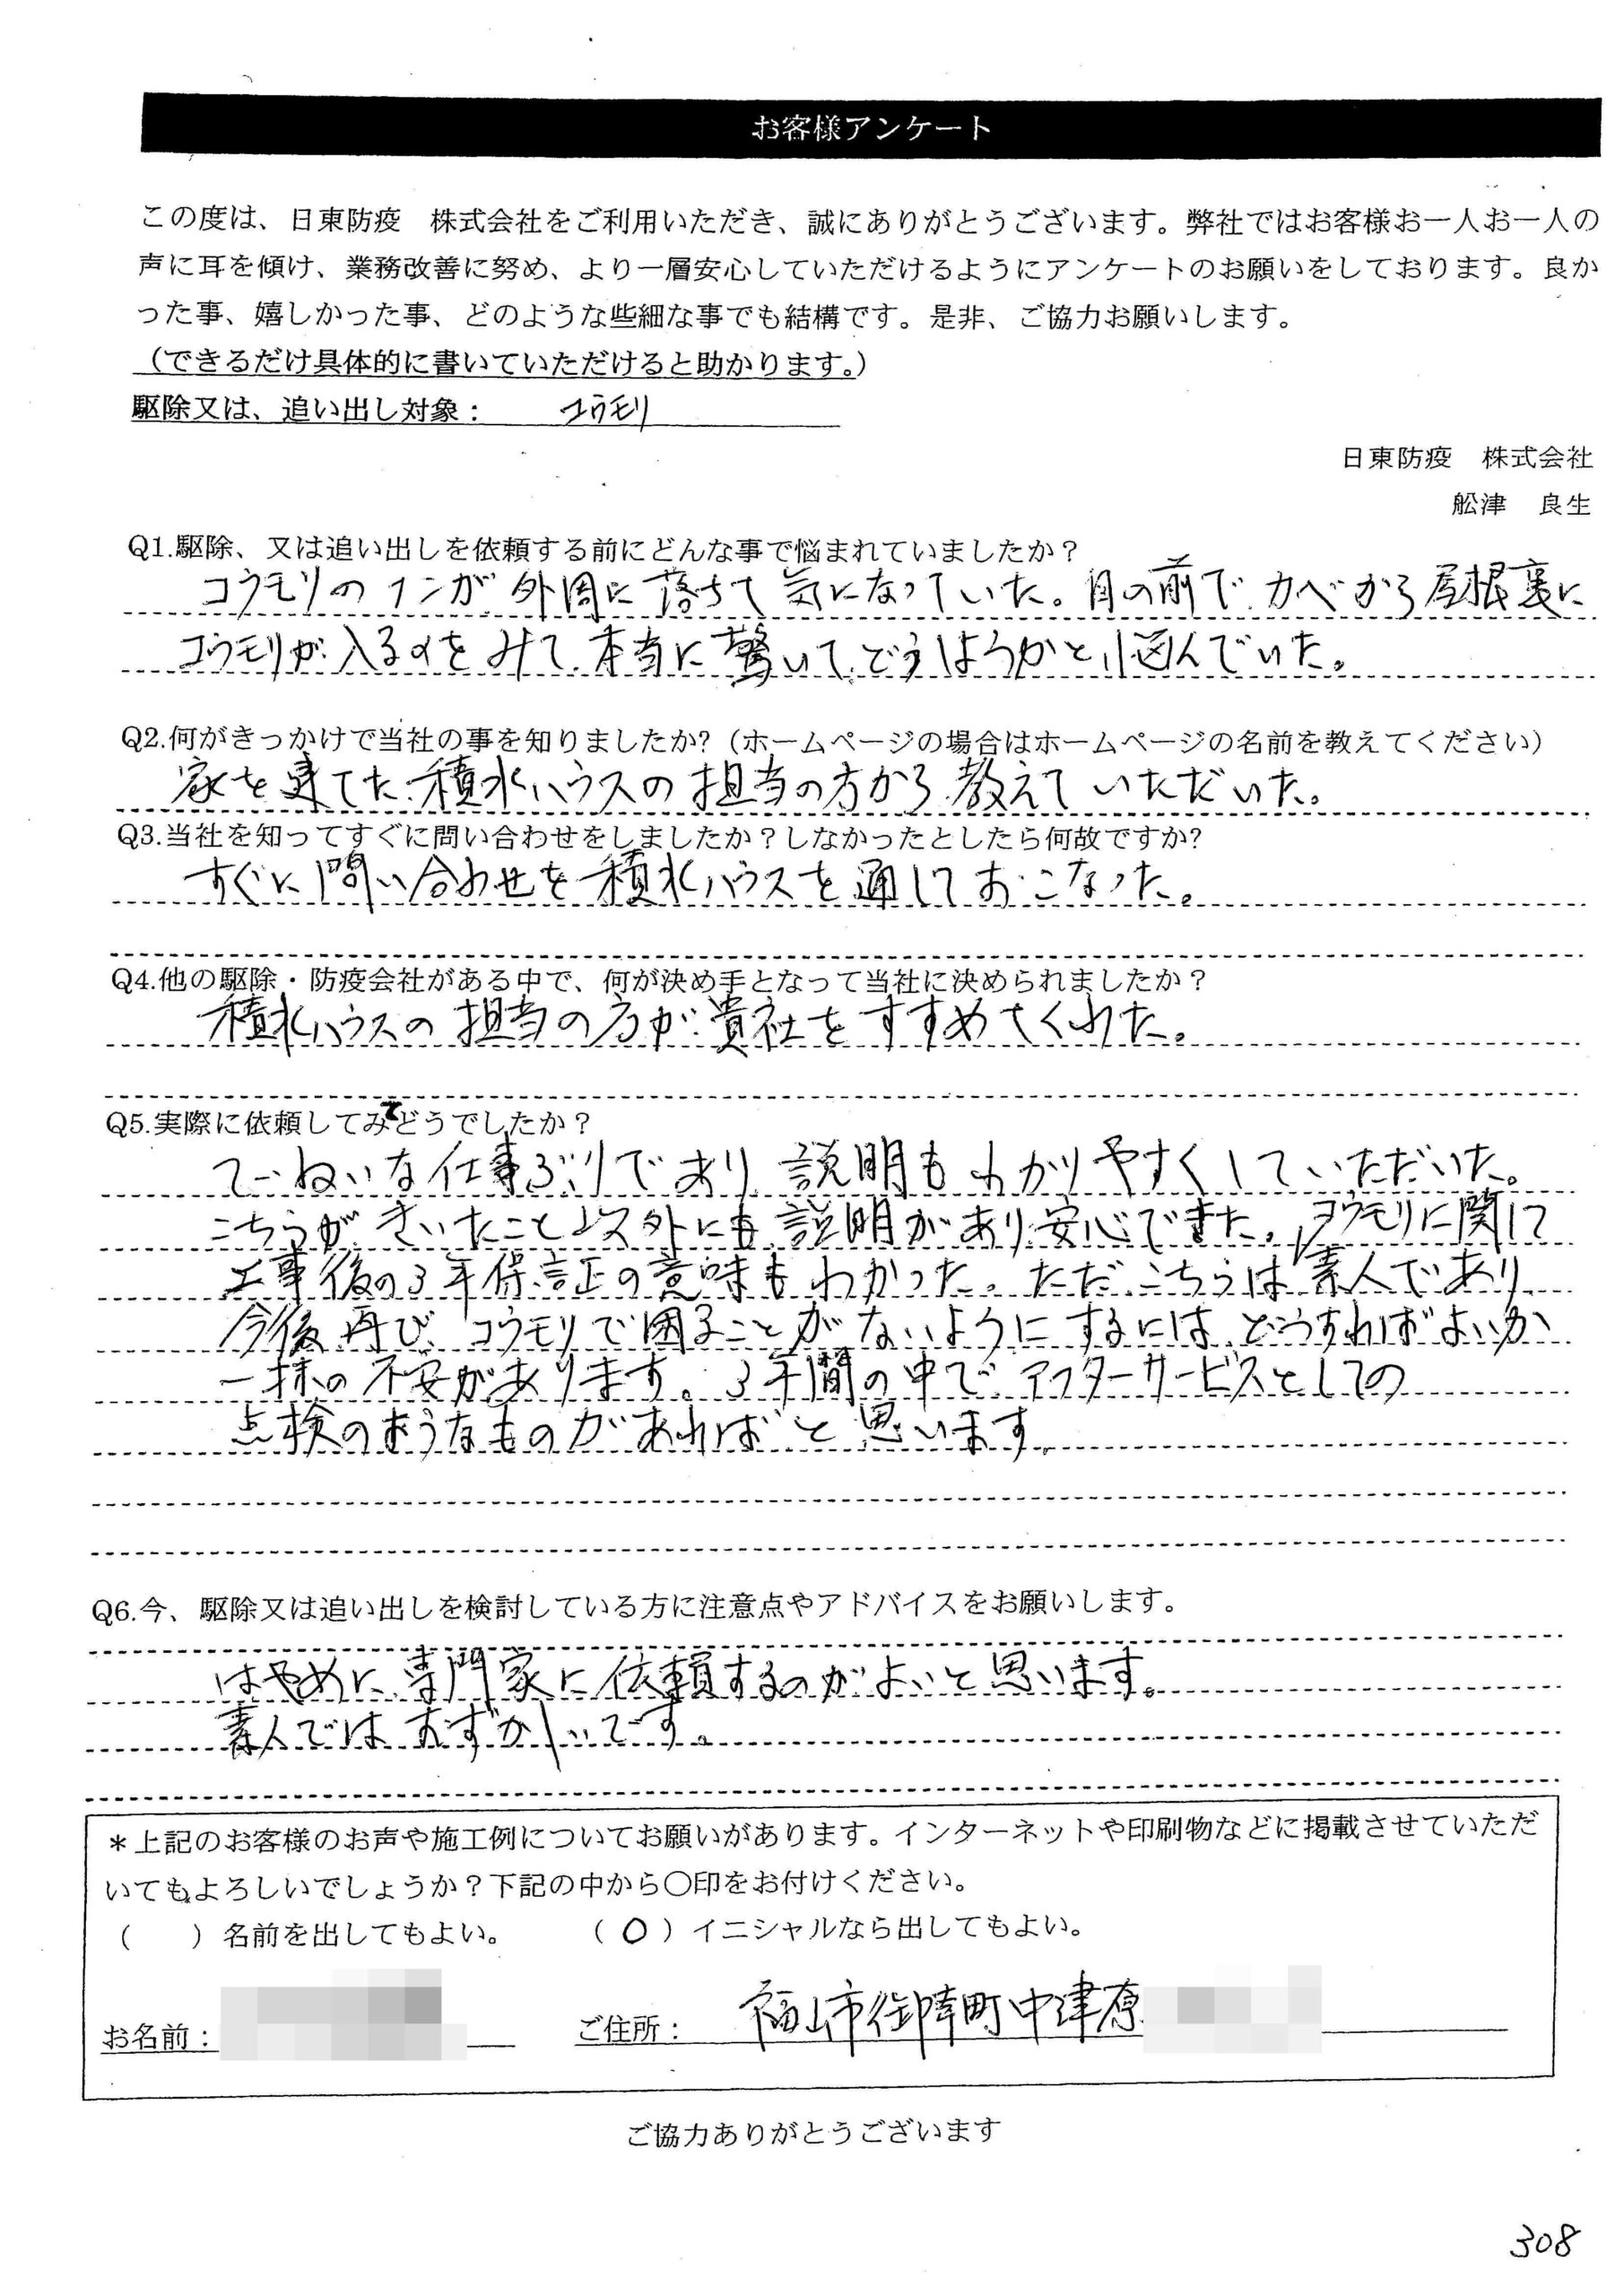 お客様アンケート
この度は、日東防疫　株式会社をご利用いただき、誠にありがとうございます。弊社ではお客様お一人お一人の
声に耳を傾け、業務改善に努め、より一層安心していただけるようにアンケートのお願いをしております。良か
った事、嬉しかった事、どのような些細な事でも結構です。是非、ご協力お願いします。
（できるだけ具体的に書いていただけると助かります。）
駆除又は、追い出し対象：　コウモリ
日東防疫　株式会社
舩津　良生
Q1.駆除、又は追い出しを依頼する前にどんな事で悩まれていましたか？
コウモリのフンが外周に落ちて気になっていた。目の前で、カベから屋根裏に
コウモリが入るのをみて、本当に驚いて、どうしようかと悩んでいた。
Q2.何がきっかけで当社の事を知りましたか?（ホームページの場合はホームページの名前を教えてください）
家を建てた積水ハウスの担当の方から教えていただいた。
Q3.当社を知ってすぐに問い合わせをしましたか？しなかったとしたら何故ですか?
すぐに問い合わせを積水ハウスを通しておこなった。
Q4.他の駆除・防疫会社がある中で、何が決め手となって当社に決められましたか？
積水ハウスの担当の方が貴社をすすめてくれた。
Q5.実際に依頼してみてどうでしたか？
ていねいな仕事ぶりであり、説明もわかりやすくしていただいた。
こちらがきいたこと以外にも説明があり、安心できた。コウモリに関して
工事後の3年保証の意味もわかった。ただ、こちらは素人であり、
今後、再び、コウモリで困ることがないようにするには、どうすればよいか
一抹の不安があります。3年間の中で、アフターサービスとしての
点検のようなものがあればと思います。
Q6.今、駆除又は追い出しを検討している方に注意点やアドバイスをお願いします。
はやめに、専門家に依頼するのがよいと思います。
素人ではむずかしいです。
＊上記のお客様のお声や施工例についてお願いがあります。インターネットや印刷物などに掲載させていただ
いてもよろしいでしょうか？下記の中から〇印をお付けください。
（　　）名前を出してもよい。　　（ 〇 ）イニシャルなら出してもよい。
お名前：　ご住所：　福山市御幸町中津原
ご協力ありがとうございます
308